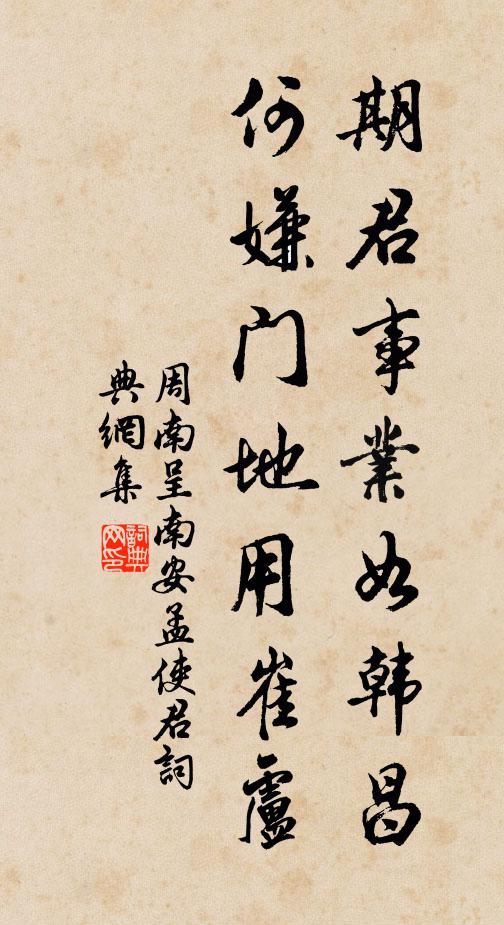 期君事業如韩昌
何嫌門地用崔盧
周南呈南安孟使君詞
典網集
詞典
网印